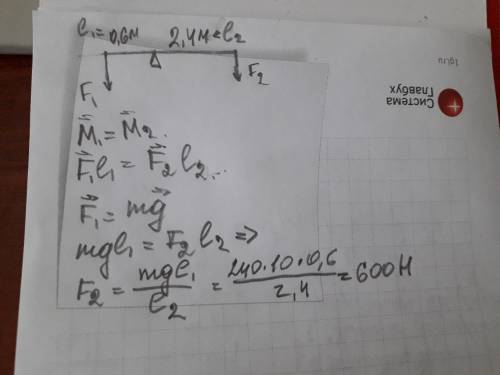 l₁=0,6м 2,4м=l₂
F₁ F₂
M⃗₁=M⃗₂.
F⃗₁l₁=F⃗₂l₂...
F⃗₁=mg⃗
mgl₁=F₂l₂=>
F₂=mgl₁/l₂=240·10·0,6/2,4=600Н
Система
Главбух
1gl.ru